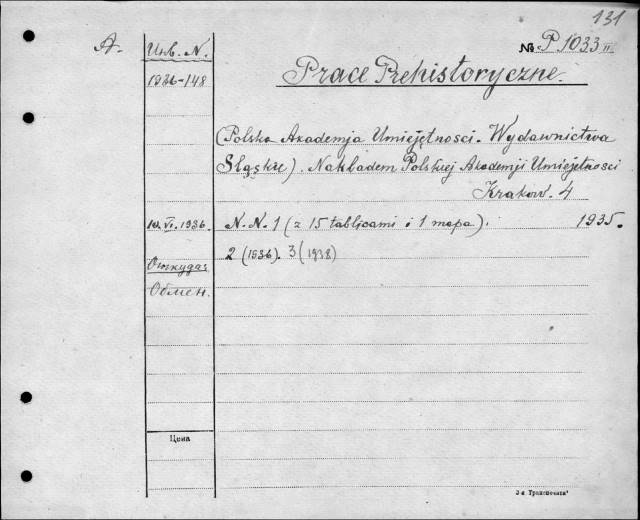 131
A.
Инв. N.
№ P. 1033 II
1936-148
Prace Prehistoryczne.
(Polska Akademja Umiejętnosci. Wydawnictwa
Sląskie). Nakładem Polskiej Akademji Umiejetnosci
Krakow. 4
10. VI. 1936.
N. N. 1 (z 15 tablicami i 1 mapa).
1935.
2 (1936). 3 (1938)
Откуда:
Обмен.
Цена